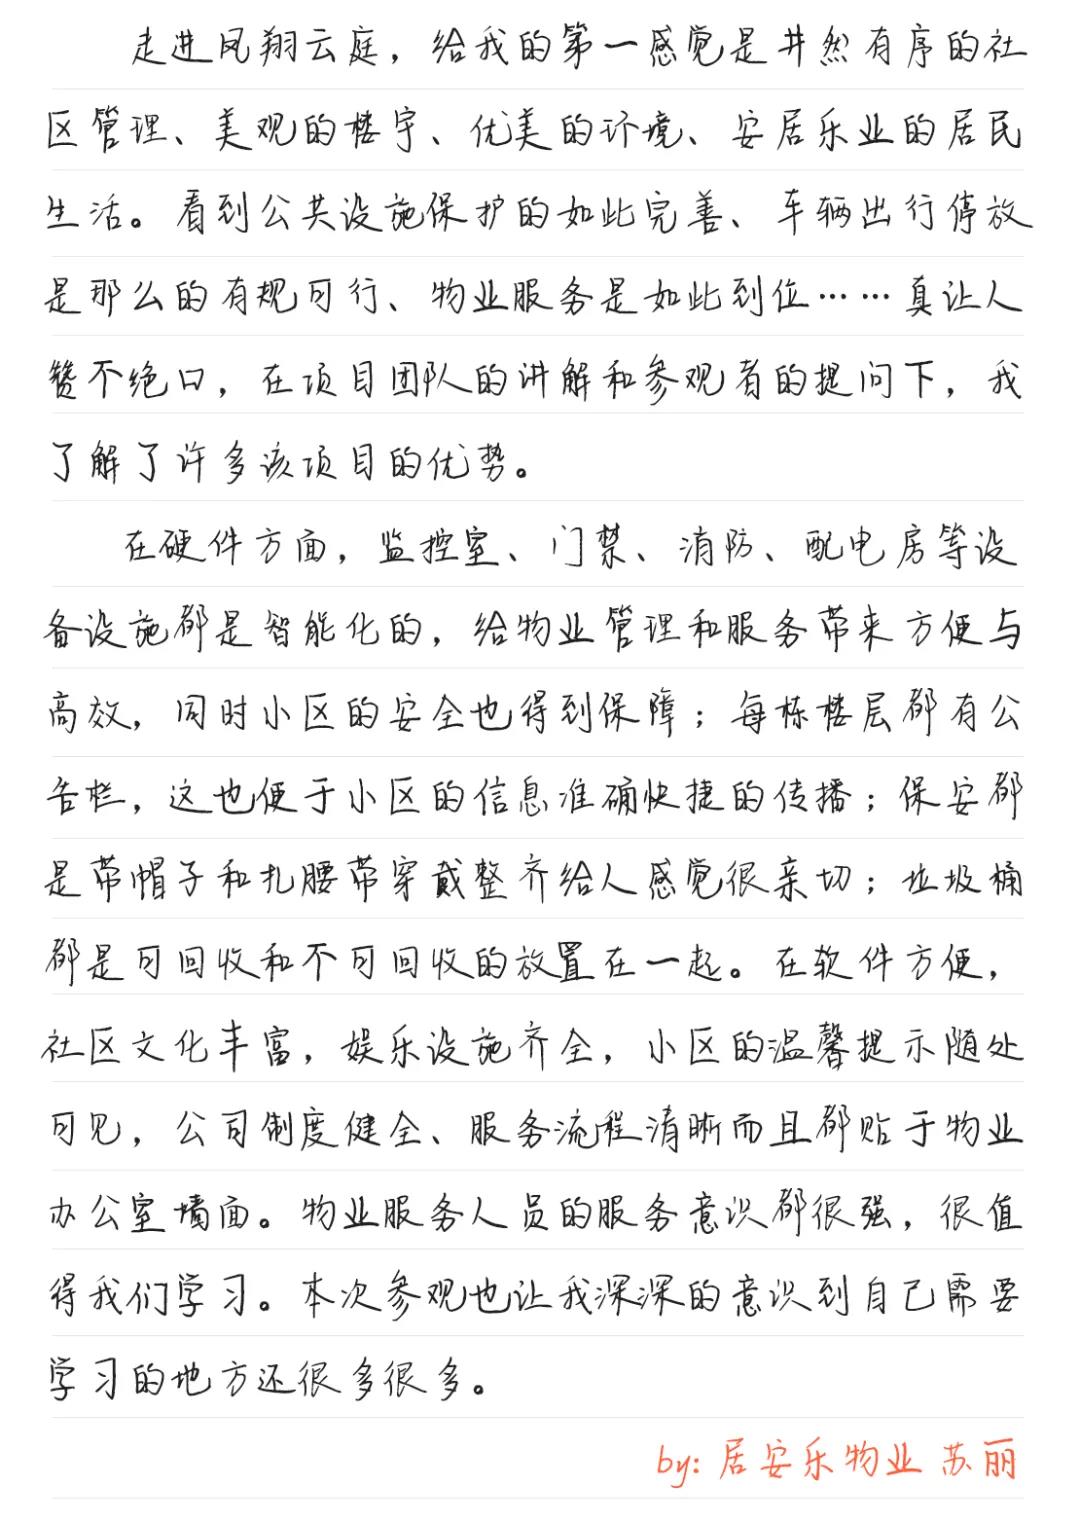 走进凤翔云庭，给我的第一感觉是井然有序的社
区管理、美观的楼宇、优美的环境、安居乐业的居民
生活。看到公共设施保护的如此完善、车辆出行停放
是那么的有规可行、物业服务是如此到位……真让人
赞不绝口，在项目团队的讲解和参观者的提问下，我
了解了许多该项目的优势。
在硬件方面，监控室、门禁、消防、配电房等设
备设施都是智能化的，给物业管理和服务带来方便与
高效，同时小区的安全也得到保障；每栋楼层都有公
告栏，这也便于小区的信息准确快捷的传播；保安都
是带帽子和扎腰带穿戴整齐给人感觉很亲切；垃圾桶
都是可回收和不可回收的放置在一起。在软件方便，
社区文化丰富，娱乐设施齐全，小区的温馨提示随处
可见，公司制度健全、服务流程清晰而且都贴于物业
办公室墙面。物业服务人员的服务意识都很强，很值
得我们学习。本次参观也让我深深的意识到自己需要
学习的地方还很多很多。
by: 居安乐物业 苏丽